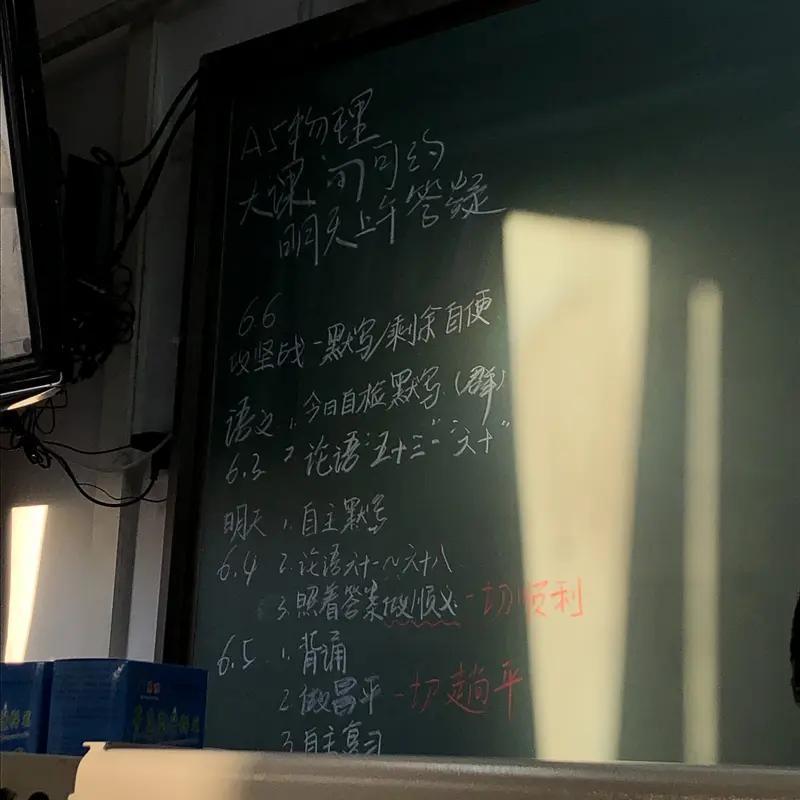 A5物理
大课间可约
明天上午答疑
6.6
攻坚战-默写/剩余自便
语文 1. 今日自检默写(群)
6.3 2 论语"五十三""六十"
明天 1. 自主默写
6.4 2. 论语六十一~六十八
3. 照着答案做顺义 一切顺利
6.5 1. 背诵
2. 做昌平 一切趟平
3. 自主复习